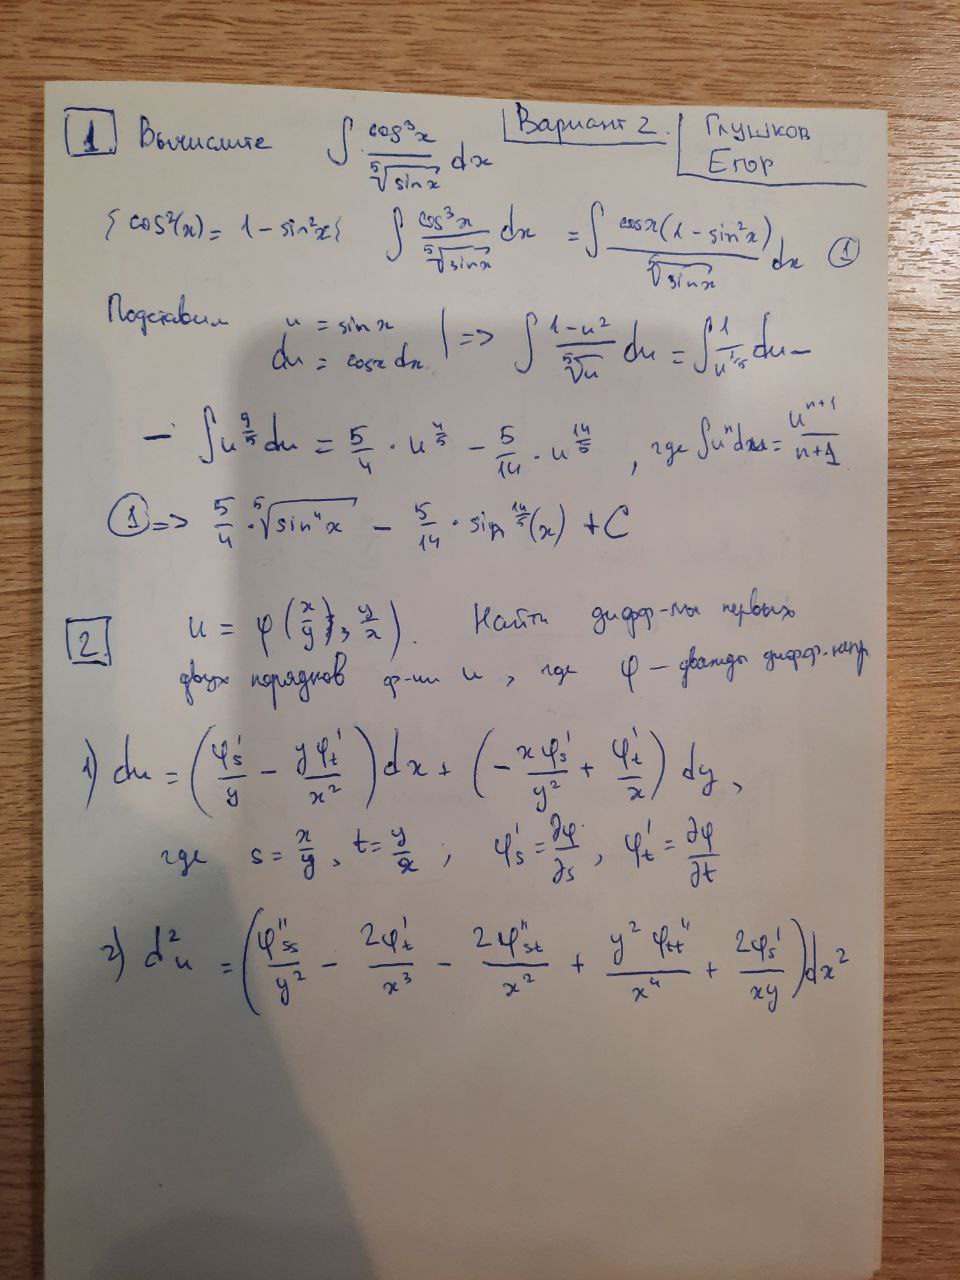 1 Вычислите ∫ cos³x / ⁵√sinx dx Вариант 2. Глушков Егор
{cos²(x) = 1 - sin²x} ∫ cos³x / ⁵√sinx dx = ∫ cosx(1 - sin²x) / ⁵√sinx dx ①
Подставим u = sinx
du = cosx dx | => ∫ (1-u²) / ⁵√u du = ∫ 1/u^(1/5) du -
- ∫ u^(9/5) du = 5/4 · u^(4/5) - 5/14 · u^(14/5), где ∫uⁿdu = u^(n+1) / (n+1)
① => 5/4 · ⁵√sin⁴x - 5/14 · sin^(14/5)(x) + C
2. u = φ(x/y; y/x). Найти дифф-лы первых
двух порядков ф-ии u, где φ - дважды дифф. непр
1) du = (φ's/y - yφ't/x²) dx + (- xφ's/y² + φ't/x) dy,
где s = x/y, t = y/x; φ's = ∂φ/∂s, φ't = ∂φ/∂t
2) d²u = (φ''ss/y² - 2φ't/x³ - 2φ''st/x² + y²φtt''/x⁴ + 2φs'/xy) dx²